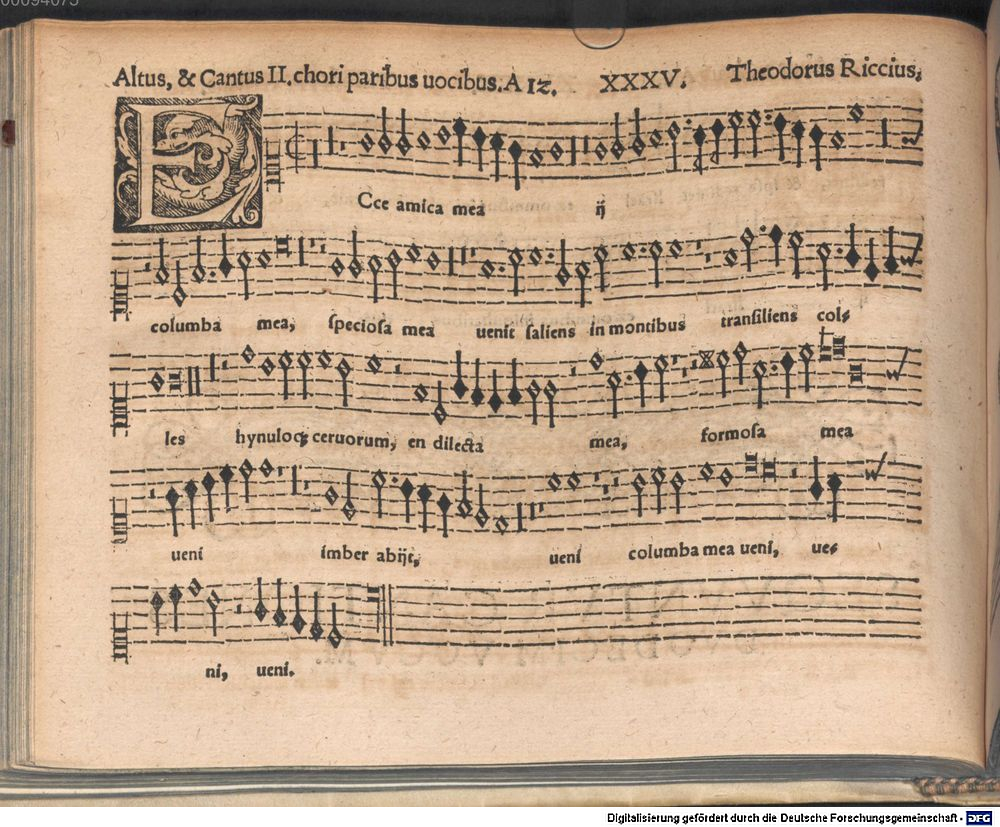 00094075
Altus, & Cantus II. chori paribus uocibus. A 12. XXXV. Theodorus Riccius;
ECce amica mea ij
columba mea, speciosa mea uenit saliens in montibus transiliens col-
les hynuloq; ceruorum, en dilecta mea, formosa mea
ueni imber abijt, ueni columba mea ueni, ue-
ni, ueni.
Digitalisierung gefördert durch die Deutsche Forschungsgemeinschaft - DFG